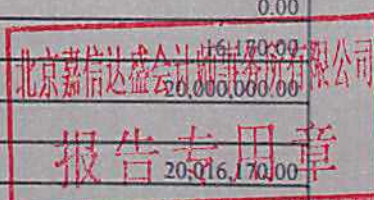 0.00
16,170.00
北京嘉信达盛会计师事务所有限公司
20,000,000.00
报告专用章
20,016,170.00